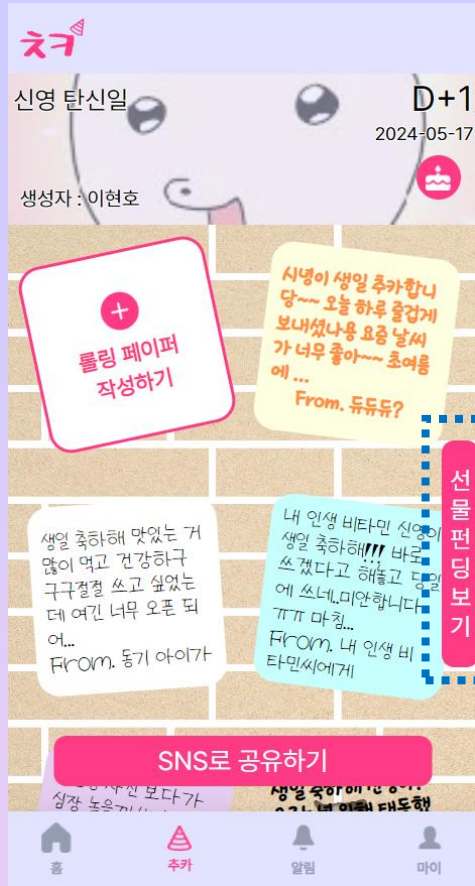 츠ㅋ
신영 탄신일
D+1
2024-05-17
생성자 : 이현호
롤링 페이퍼
작성하기
시녕이 생일 추카합니
당~~ 오늘 하루 즐겁게
보내셨나용 요즘 날씨
가 너무 좋아~~ 초여름
에 ...
From. 듀듀듀?
선물펀딩보기
생일 축하해 맛있는 거
많이 먹고 건강하구
구구절절 쓰고 싶었는
데 여긴 너무 오픈 되
어...
From. 동기 아이가
내 인생 비타민 신영이
생일 축하해!!! 바로
쓰겠다고 해놓고 당일
에 쓰네..미안합니다
ㅠㅠ 마침...
From. 내 인생 비
타민씨에게
SNS로 공유하기
보다가
심장
생일 축하해
홈
추카
알림
마이